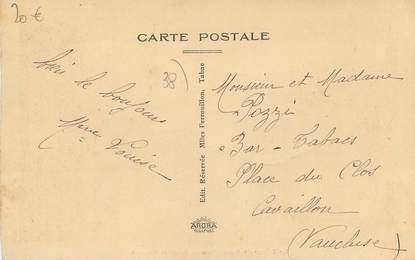 20 €
CARTE POSTALE
38)
le bonjour
Mme Louise
Edit. Réservée Mlles Ferrouillon, Tabac
Monsieur et Madame
Pozzi
Bar-Tabacs
Place du Clos
Cavaillon
(Vaucluse)
ARGRA